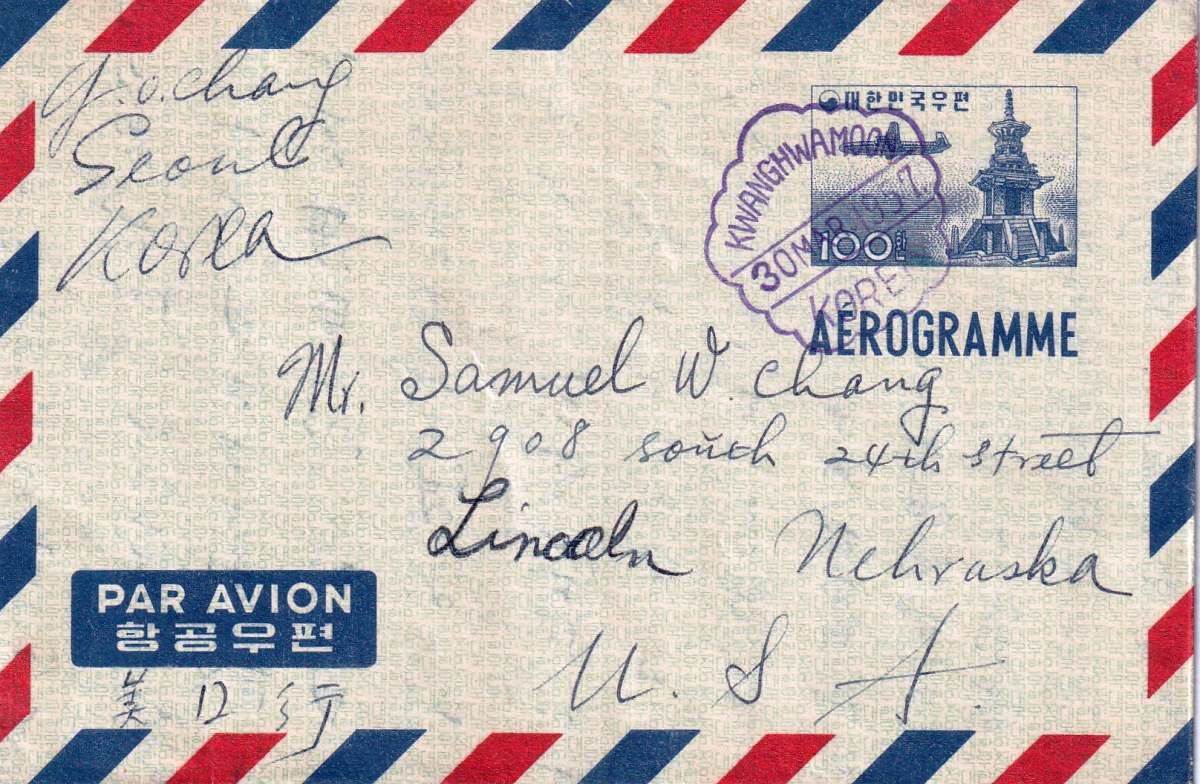 y. o. chang
Seoul
Korea
대한민국우편
100환
KWANGHWAMOON
30 MAR 1957
KOREA
AÉROGRAMME
Mr. Samuel W. Chang
2908 south 24th street
Lincoln Nebraska
U. S. A.
PAR AVION
항공우편
美 口 行